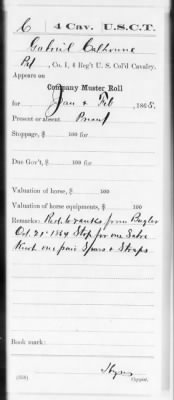 C 4 Cav. U.S.C.T.
Gabriel Calhoune
Pvt, Co. I, 4 Reg't U. S. Col'd Cavalry.
Appears on
Company Muster Roll
for Jan & Feb, 1865.
Present or absent Present
Stoppage, $ 100 for
Due Gov't, $ 100 for
Valuation of horse, $ 100
Valuation of horse equipments, $ 100
Remarks: Red. to ranks from Bugler
Oct. 21st 1864 Stop for one Sabre
Knot one pair Spurs & Straps
Book mark:
(358) Copyist.